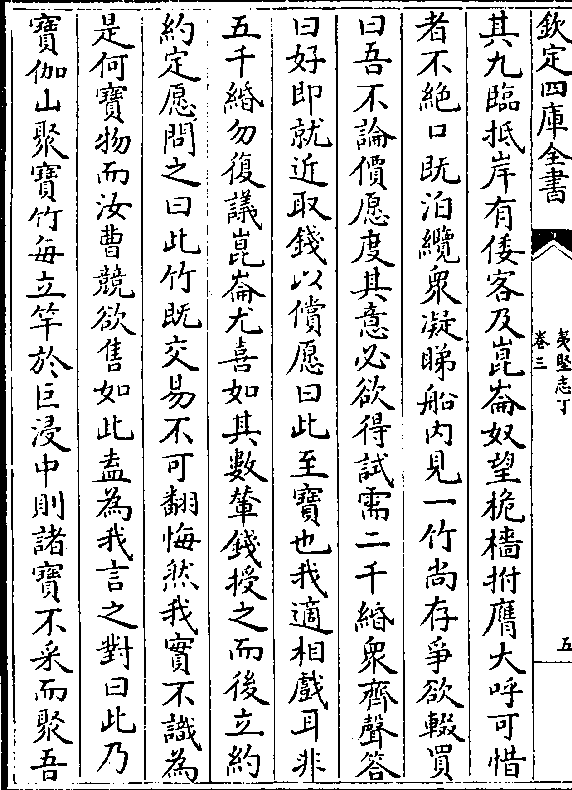 欽定四庫全書
夷堅志丁
卷三
五
其九臨抵岸有倭客及崑崙奴望桅檣拊膺大呼可惜
者不絕口既泊纜衆凝睇船内見一竹尚存爭欲輟買
曰吾不論價愿度其意必欲得試需二千緡衆齊聲答
曰好即就近取錢以償愿曰此至寶也我適相戲耳非
五千緡勿復議崑崙尤喜如其數輦錢授之而後立約
約定愿問之曰此竹既交易不可翻悔然我實不識為
是何寶物而汝曹競欲售如此盍為我言之對曰此乃
寶伽山聚寶竹每立竿於巨浸中則諸寶不采而聚吾